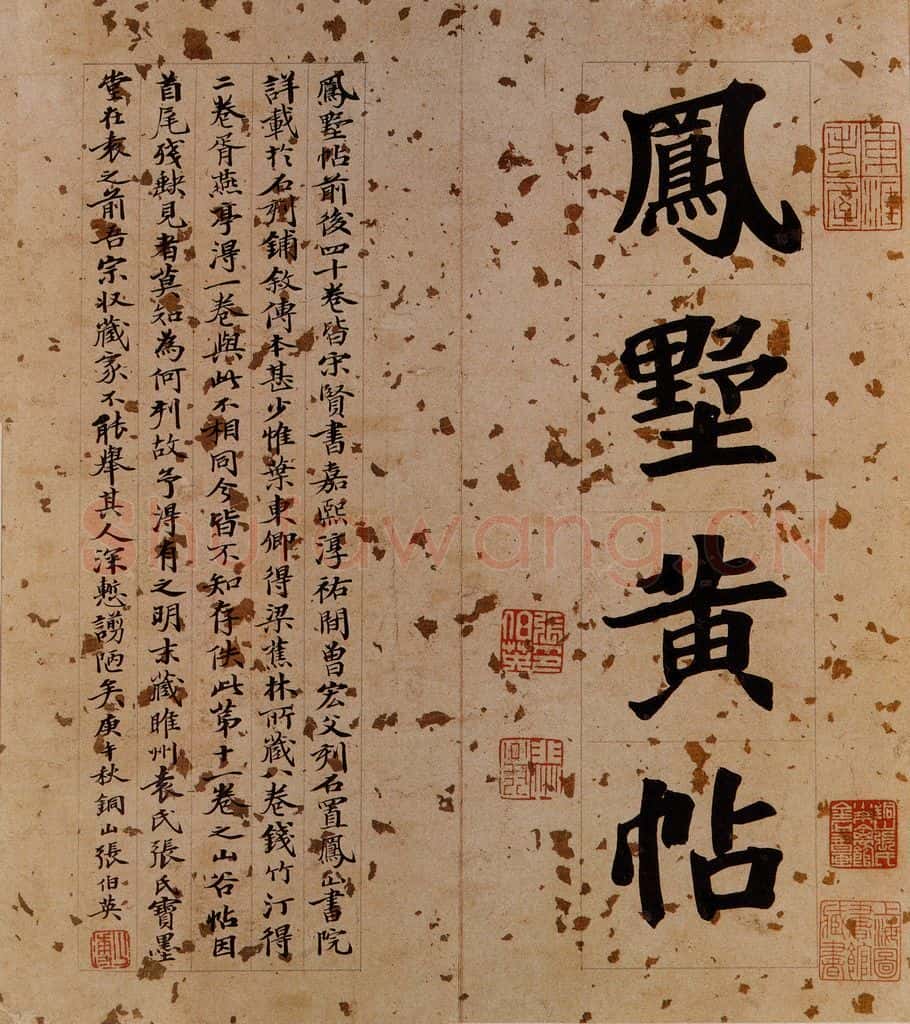 鳳墅黄帖
鳳墅帖前後四十卷皆宋賢書嘉熙淳祐間曾宏父刋石置鳳山書院
詳載於石刋鋪敘傳本甚少惟葉東卿得梁蕉林所藏八卷錢竹汀得
二卷胥燕亭淂一卷與此不相同今皆不知存佚此第十一卷之山谷帖因
首尾殘缺見者莫知為何刋故予淂有之明末藏睢州袁氏張氏寶墨
堂在袁之前吾宗收藏家不能舉其人深慙謭陋矣庚午秋銅山張伯英
張伯英
上海圖書館藏書
Shufawang.CN